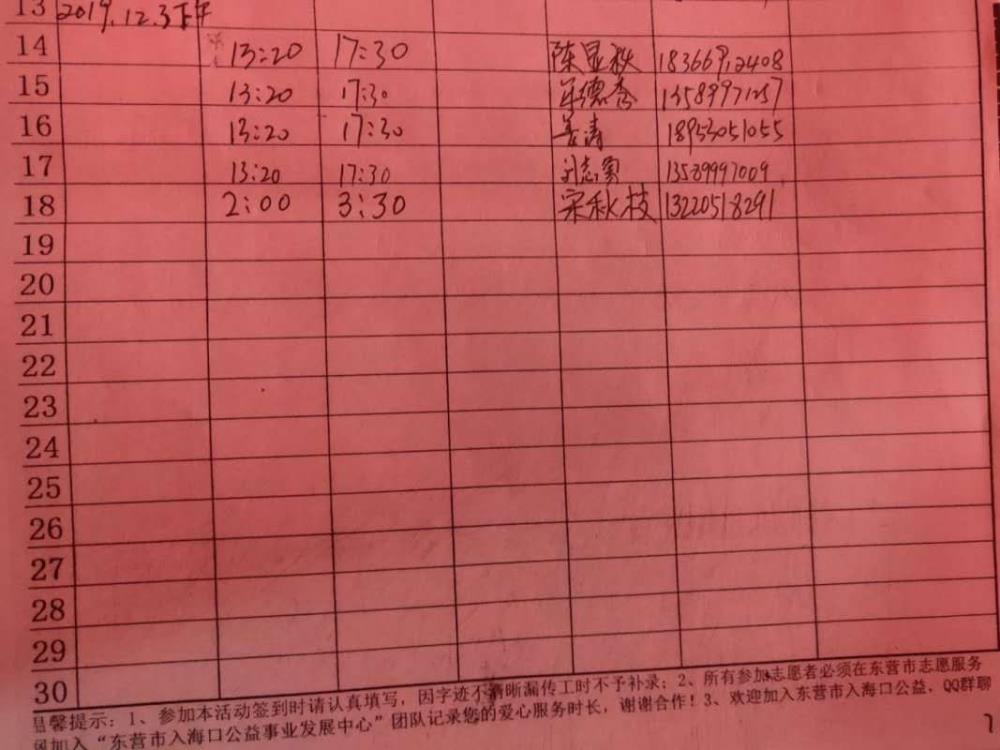 13 2019.12.3下午
14 13:20 17:30 陈显秋 18366912408
15 13:20 17:30 德秀 13589971257
16 13:20 17:30 姜涛 18953051055
17 13:20 17:30 刘志勇 13589997009
18 2:00 3:30 宋秋枝 13220518291
19
20
21
22
23
24
25
26
27
28
29
30
温馨提示：1、参加本活动签到时请认真填写，因字迹不清晰漏传工时不予补录；2、所有参加志愿者必须在东营市志愿服务
网加入“东营市入海口公益事业发展中心”团队记录您的爱心服务时长，谢谢合作！3、欢迎加入东营市入海口公益，QQ群聊